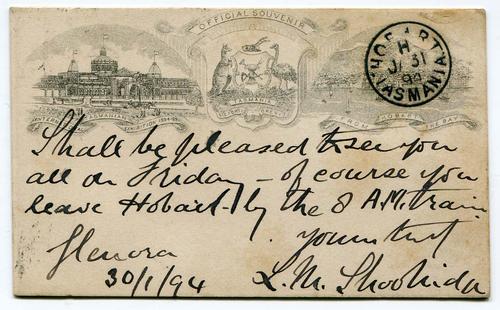 OFFICIAL SOUVENIR
TASMANIA
TASMANIAN
EXHIBITION 1894-95
FROM HOBART THE BAY
HOBART
H
JA 31
94
TASMANIA
Shall be pleased to see you
all on Friday – of course you
leave Hobart by the 8 A.M. train
yours
Glenora
30/1/94
L. M. Shoobridge